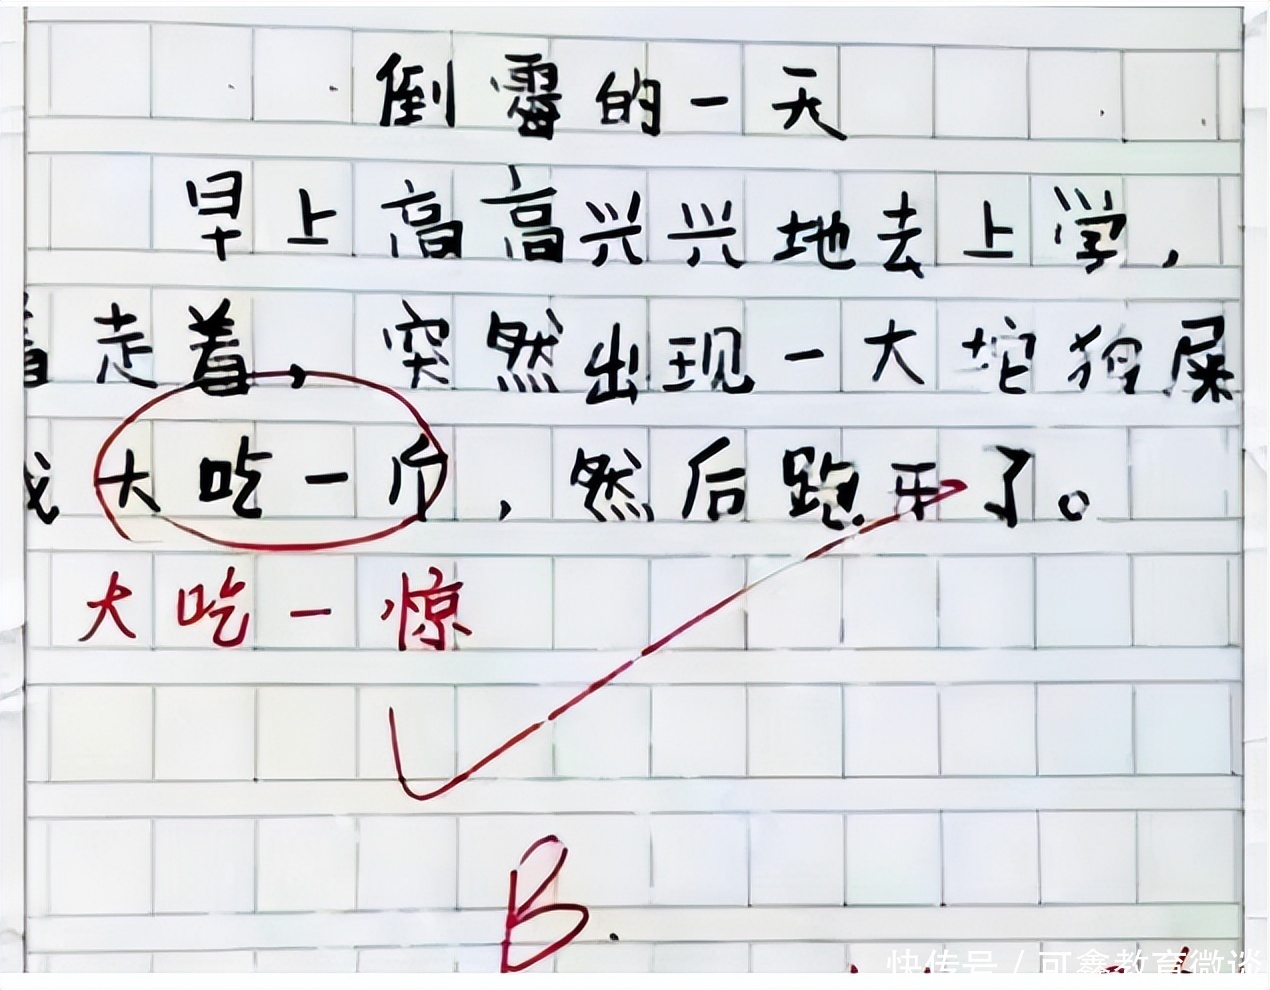 倒霉的一天
早上高高兴兴地去上学,
着走着,突然出现一大坨狗屎
我大吃一斤,然后跑开了。
大吃一惊
B.
快传号/可鑫教育微谈